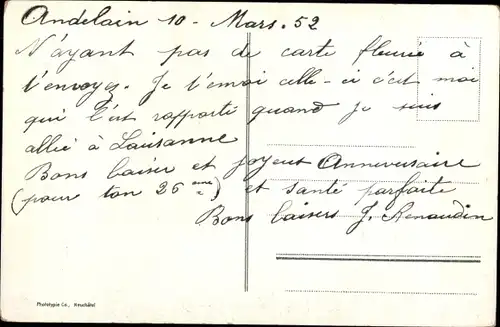 Andelain 10 - Mars. 52
N'ayant pas de carte fleurie à
t'envoyez. Je t'envoi celle-ci c'est moi
qui l'est rapporté quand je suis
allié à Lausanne
Bons baiser et joyeux Anniversaire
(pour ton 26 ème) et santé parfaite
Bons baisers J. Renaudin
Phototypie Co., Neuchâtel